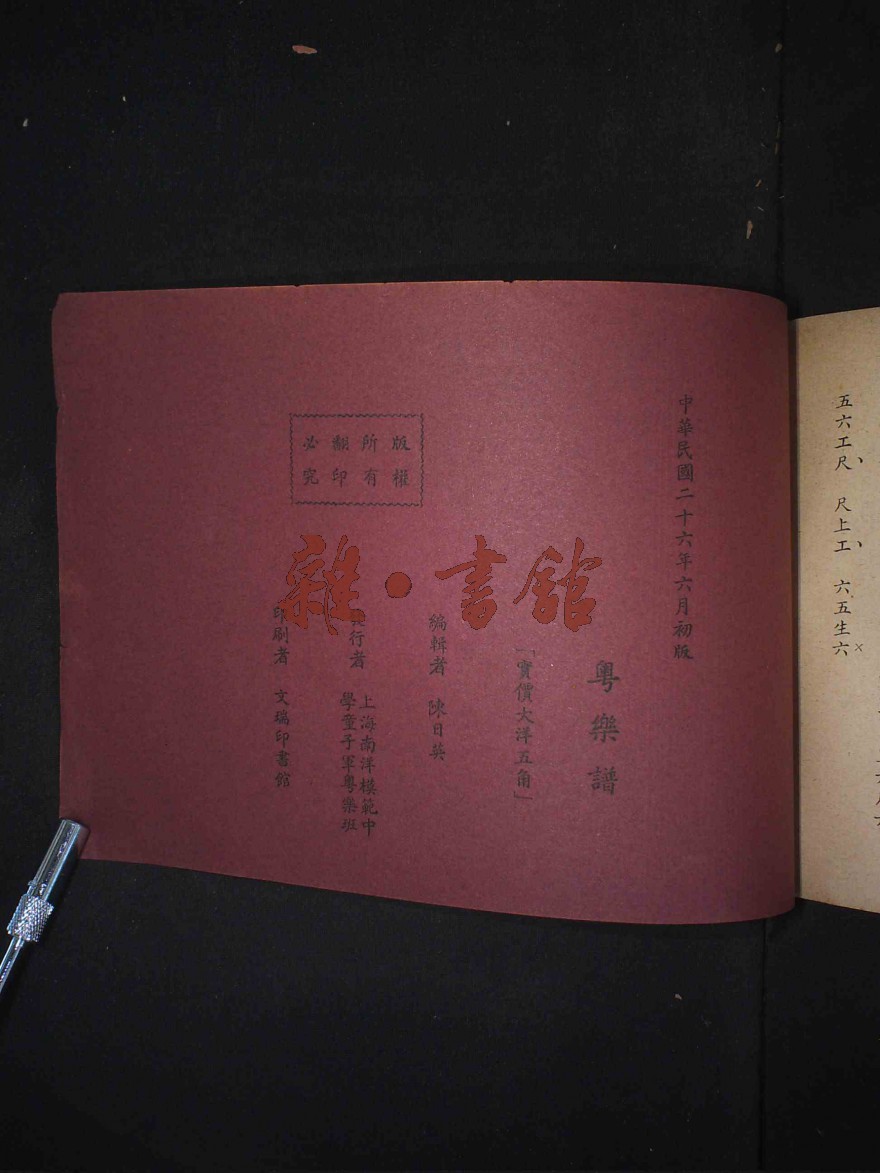 中華民國二十六年六月初版
粵樂譜
「實價大洋五角」
編輯者 陳日英
行者 上海南洋模範中
學童子軍粵樂班
印刷者 文瑞印書館
版權
所有
翻印
必究
雜·書館
五六工尺、 尺上工、 六五生六×